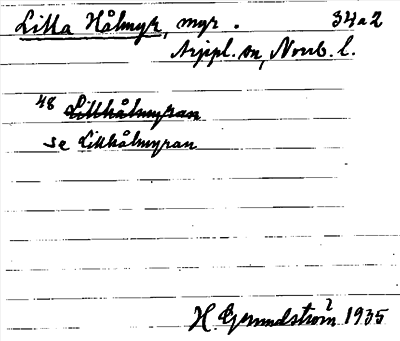 Litla Håmyr, myr. 34a2
Arjepl. sn, Norrb. l.
48 Littkålmyran
se Littkålmyran
H. Grundström 1935